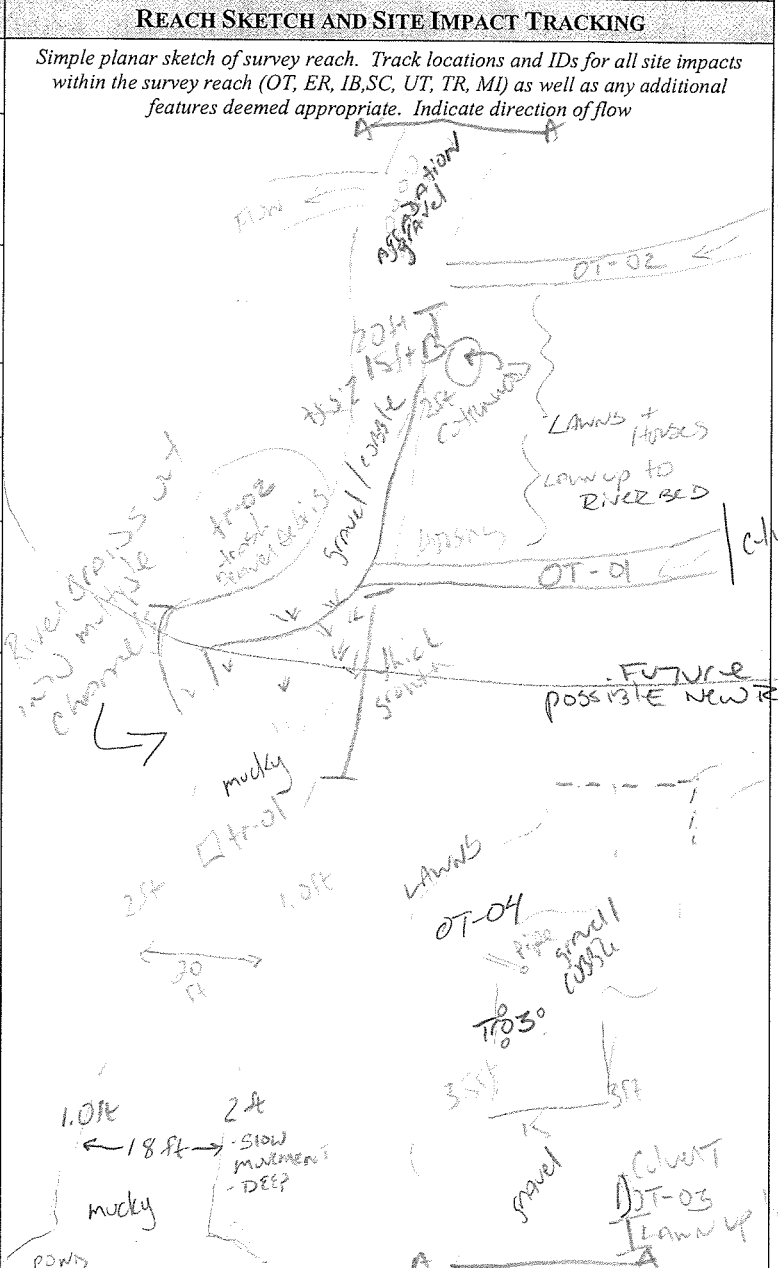 REACH SKETCH AND SITE IMPACT TRACKING
Simple planar sketch of survey reach. Track locations and IDs for all site impacts
within the survey reach (OT, ER, IB,SC, UT, TR, MI) as well as any additional
features deemed appropriate. Indicate direction of flow
A A
AGGRADATION
gravel
FLOW
OT-02
20ft T
15ft B
2.5ft
25ft
gravel / cobble
LAWNS +
HOUSES
LAWN up to
RIVER BED
tr-02
trash
OT-01
River
into multiple
channels
thick
growth
Future
possible NEW
mucky
tr-01
LAWNS
2ft
1.0ft
OT-04
pipe
gravel
cobble
20
ft
TR03
3.5ft
3ft
15
1.0ft
2ft
18ft
- SLOW
MOVEMENT
- DEEP
mucky
gravel
Culvert
OT-03
LAWN up
POND
A A